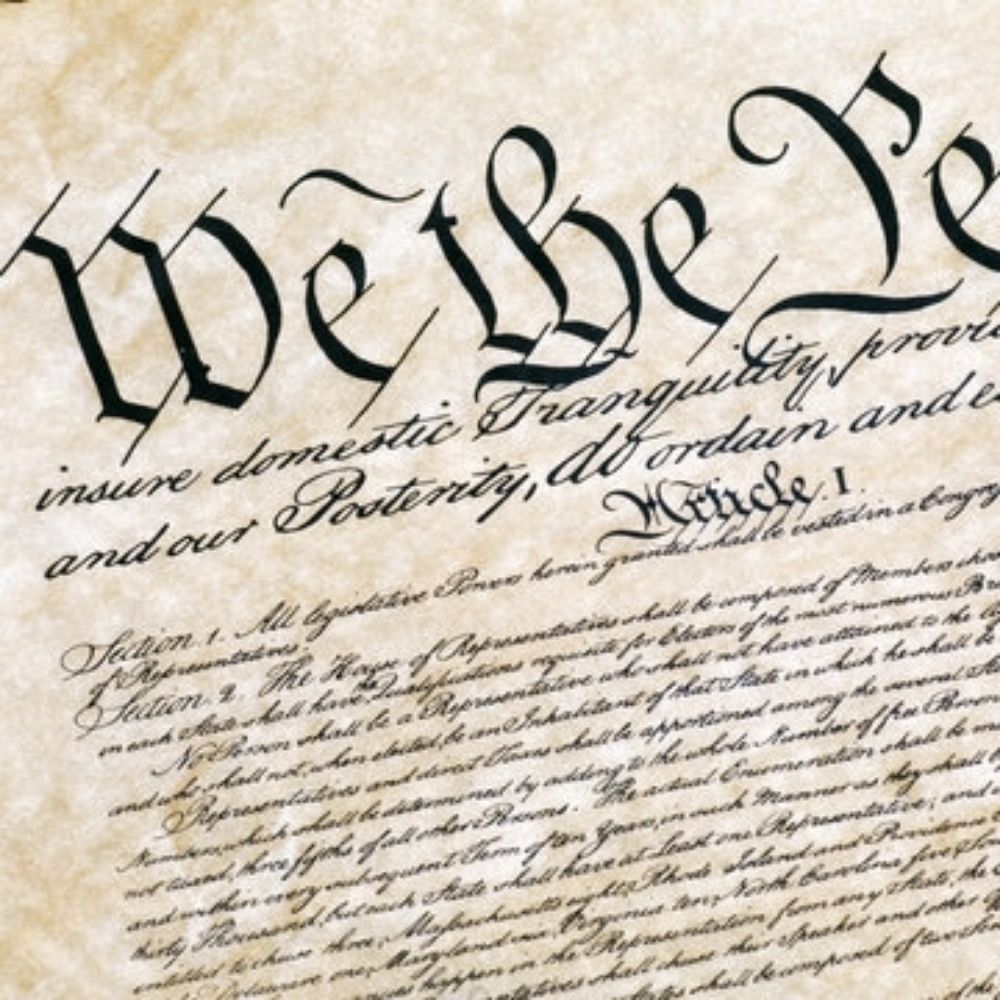 We the Pe
insure domestic Tranquility, provi
and our Posterity, do ordain and e
Article. I.
Section. 1. All legislative Powers herein granted shall be vested in a Congr
of Representatives.
Section. 2. The House of Representatives shall be composed of Members chose
in each State shall have the Qualifications requisite for Electors of the most numerous Br
No Person shall be a Representative who shall not have attained to the A
and who shall not, when elected, be an Inhabitant of that State in which he shall b
Representatives and direct Taxes shall be apportioned among the several Sta
Numbers, which shall be determined by adding to the whole Number of free Person
not taxed, three fifths of all other Persons. The actual Enumeration shall be m
and within every subsequent Term of ten Years, in such Manner as they shall
thirty Thousand, but each State shall have at Least one Representative; and
entitled to chuse three, Massachusetts eight, Rhode Island and Providence
Delaware one, Maryland six, Virginia ten, North Carolina five, So
happen in the Representation from any State, the
shall chuse their Speaker and other
shall be composed of two